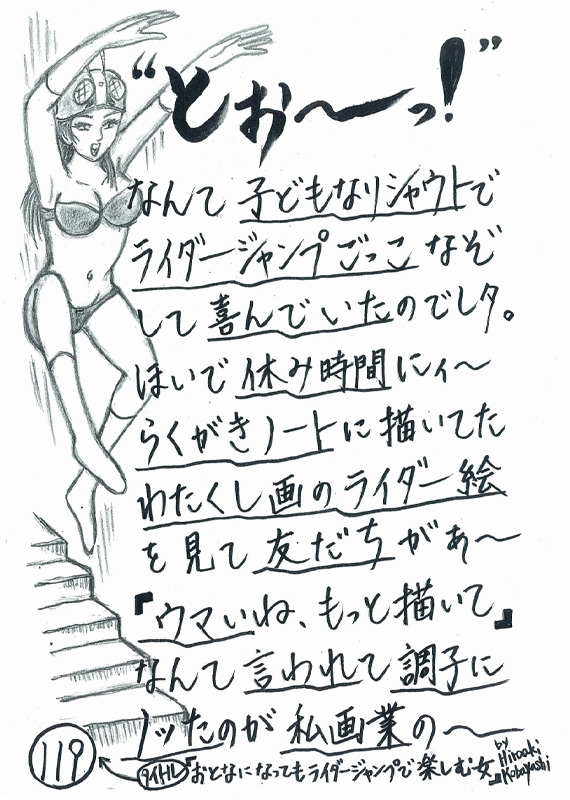 “とぉ〜っ!”
なんて 子どもなりシャウトで
ライダージャンプごっこ なぞ
して 喜んでいたのでしタ。
ほいで 休み時間にィ〜
らくがきノートに描いてた
わたくし画のライダー絵
を見て 友だちがぁ〜
『ウマいね、もっと描いて』
なんて 言われて 調子に
ノッたのが 私画業の〜
119
タイトル『おとなになってもライダージャンプで楽しむ女』
by Hiroaki Kobayashi